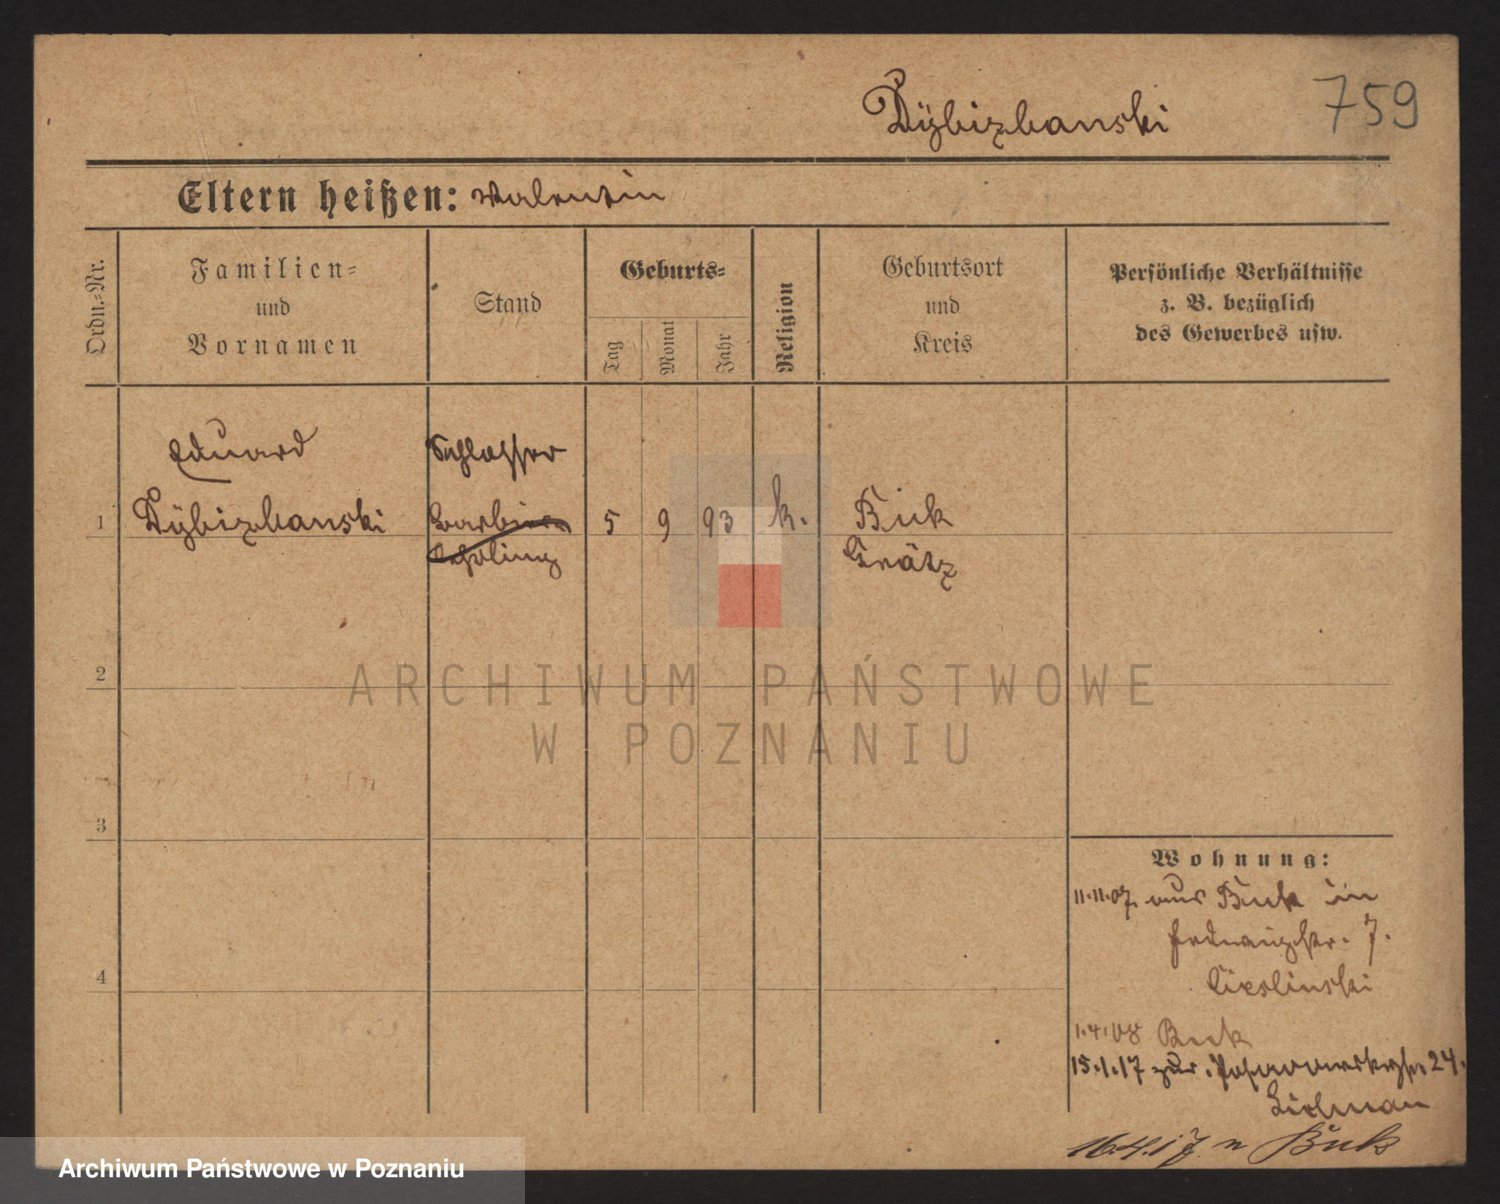 Dÿbizbanski
759
Eltern heißen: Valentin
Ordn.-Nr.
Familien-
und
Vornamen
Stand
Geburts-
Tag
Monat
Jahr
Religion
Geburtsort
und
Kreis
Persönliche Verhältnisse
z. B. bezüglich
des Gewerbes usw.
Eduard
Schlosser
1
Dÿbizbanski
Barbier
5
9
93
k.
Buk
Lehrling
Grätz
2
ARCHIWUM PAŃSTWOWE
W POZNANIU
3
Wohnung:
11.11.07. aus Buk in
7.
4
1.4.08 Buk
15.1.17 zur. 24.
n Buk
Archiwum Państwowe w Poznaniu